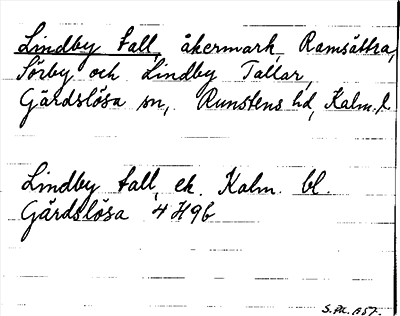 Lindby tall, åkermark, Ramsättra,
Sörby och Lindby Tallar,
Gärdslösa sn, Runstens hd, Kalm. l.
Lindby tall, ek. Kalm. bl.
Gärdslösa 4 H9b